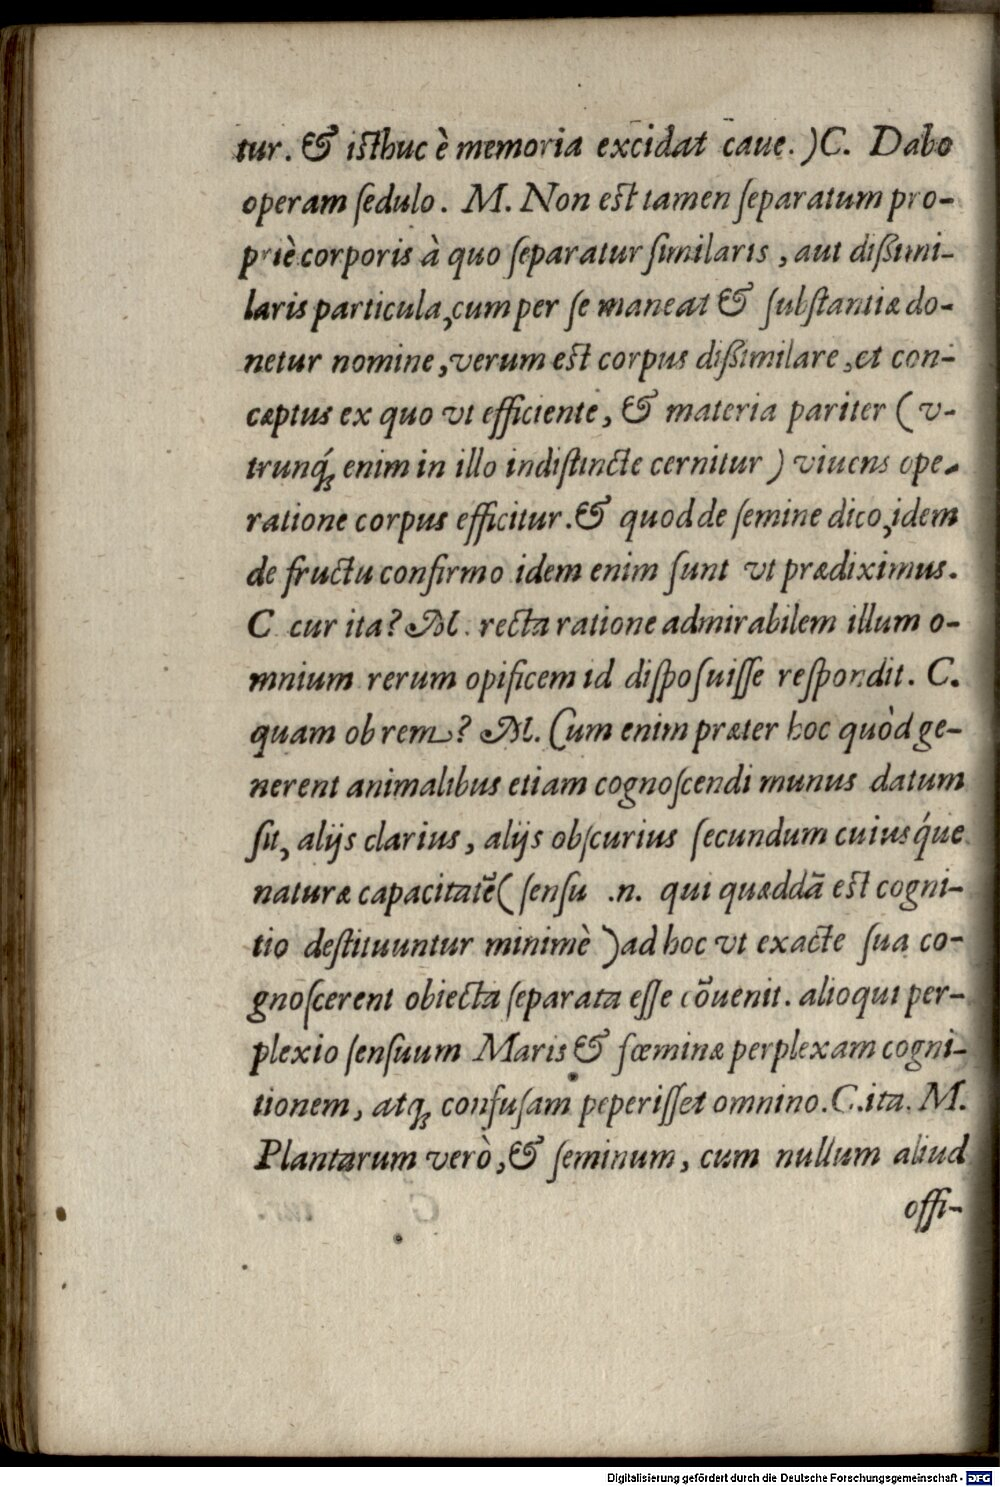 tur. & isthuc è memoria excidat caue.) C. Dabo
operam ſedulo. M. Non est tamen ſeparatum pro-
priè corporis à quo ſeparatur ſimilaris, aut diſſimi-
laris particula, cum per ſe maneat & ſubſtantiæ do-
netur nomine, verum est corpus diſſimilare, et con-
cæptus ex quo vt efficiente, & materia pariter (v-
trunq́ꝫ enim in illo indiſtincte cernitur) viuens ope-
ratione corpus efficitur. & quod de ſemine dico, idem
de fructu confirmo idem enim ſunt vt prædiximus.
C cur ita? M. recta ratione admirabilem illum o-
mnium rerum opificem id diſpoſuiſſe reſpondit. C.
quam ob rem? M. Cum enim præter hoc quòd ge-
nerent animalibus etiam cognoſcendi munus datum
ſit, alijs clarius, alijs obſcurius ſecundum cuiusq́ue
naturæ capacitatē (ſenſu .n. qui quæddā est cogni-
tio deſtituuntur minimè) ad hoc vt exacte ſua co-
gnoſcerent obiecta ſeparata eſſe cōuenit. alioqui per-
plexio ſenſuum Maris & fœminæ perplexam cogni-
tionem, atqꝫ confuſam peperiſſet omnino. C. ita. M.
Plantarum verò, & ſeminum, cum nullum aliud
offi-
Digitalisierung gefördert durch die Deutsche Forschungsgemeinschaft - DFG